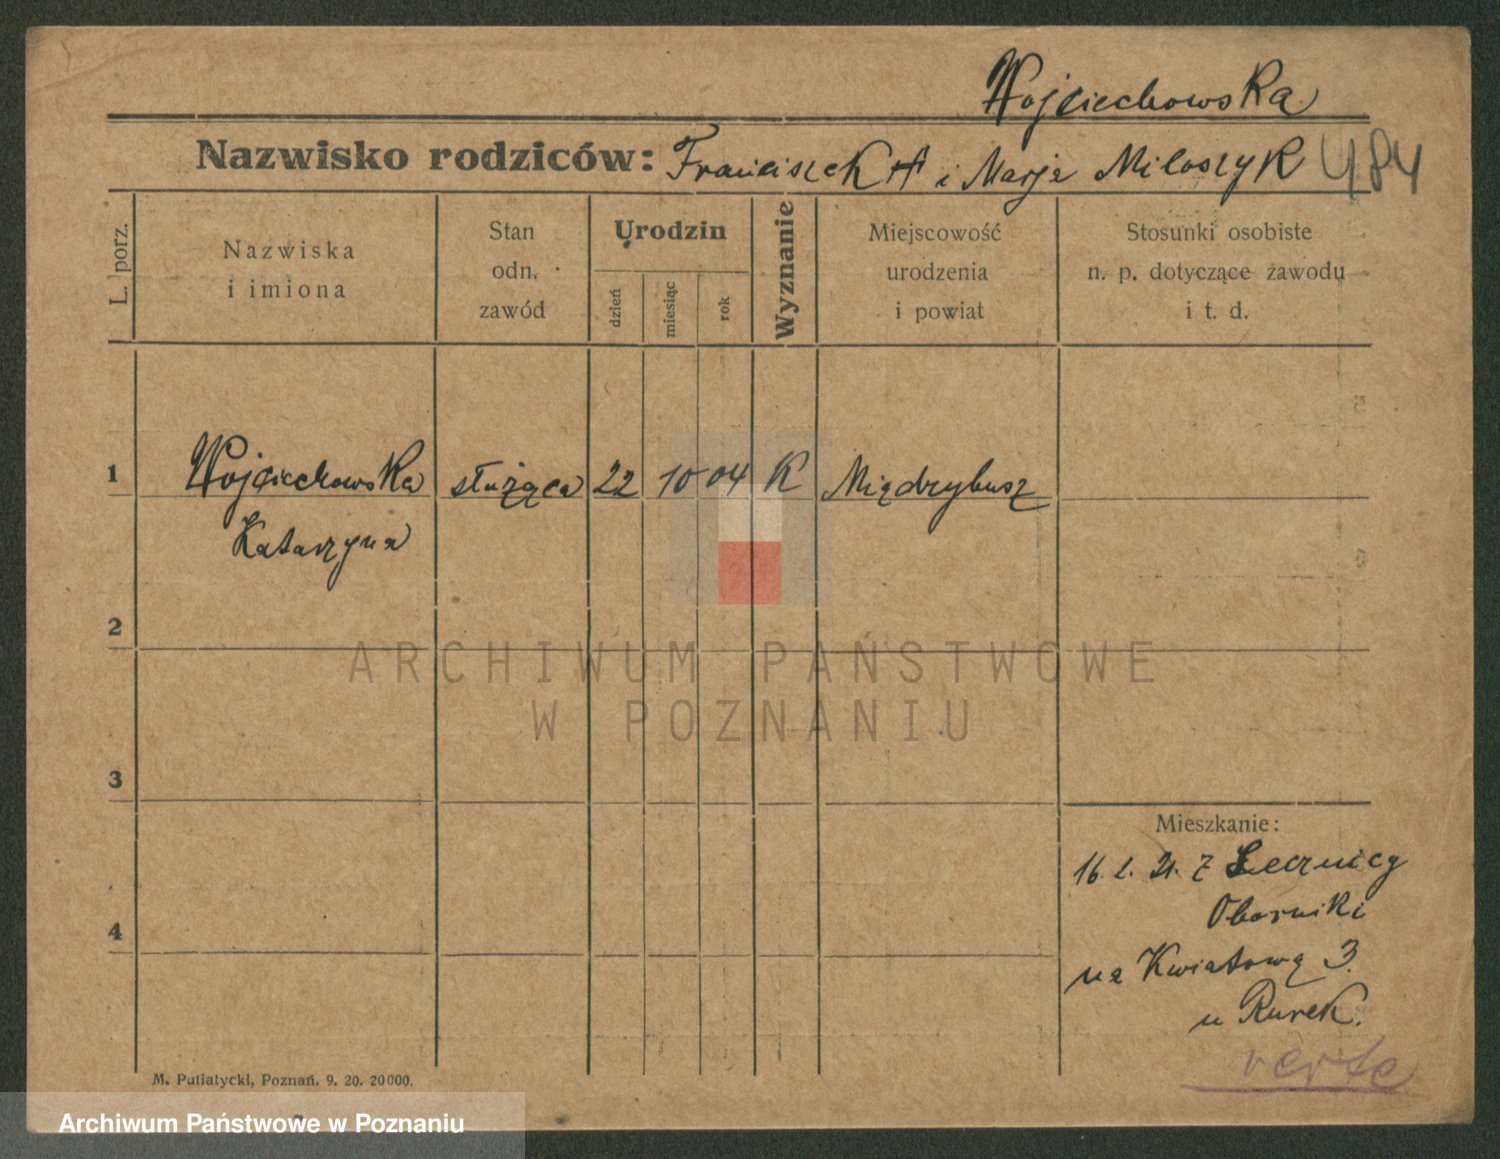 Wojciechowska
Nazwisko rodziców: Franciszek A i Marja Miloszyk 484
L. porz.
Nazwiska
i imiona
Stan
odn.
zawód
Urodzin
dzień
miesiąc
rok
Wyznanie
Miejscowość
urodzenia
i powiat
Stosunki osobiste
n. p. dotyczące zawodu
i t. d.
1 Wojciechowska służąca 22 10 04 K Międzybusz
Katarzyna
2
3
4
Mieszkanie:
16. 2. 21. z Lecznicy
Oborniki
na Kwiatową 3.
u Rurek.
verte
M. Putiatycki, Poznań. 9. 20. 20000.
ARCHIWUM PAŃSTWOWE
W POZNANIU
Archiwum Państwowe w Poznaniu